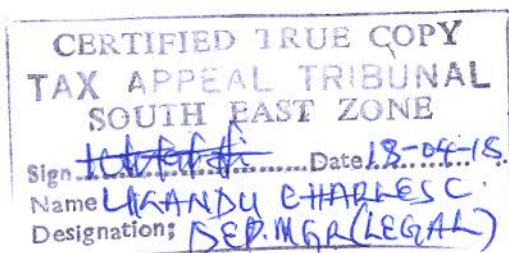 CERTIFIED TRUE COPY
TAX APPEAL TRIBUNAL
SOUTH EAST ZONE
Sign..................Date 18-04-18
Name UKANDU CHARLES C.
Designation; DEP. MGR (LEGAL)